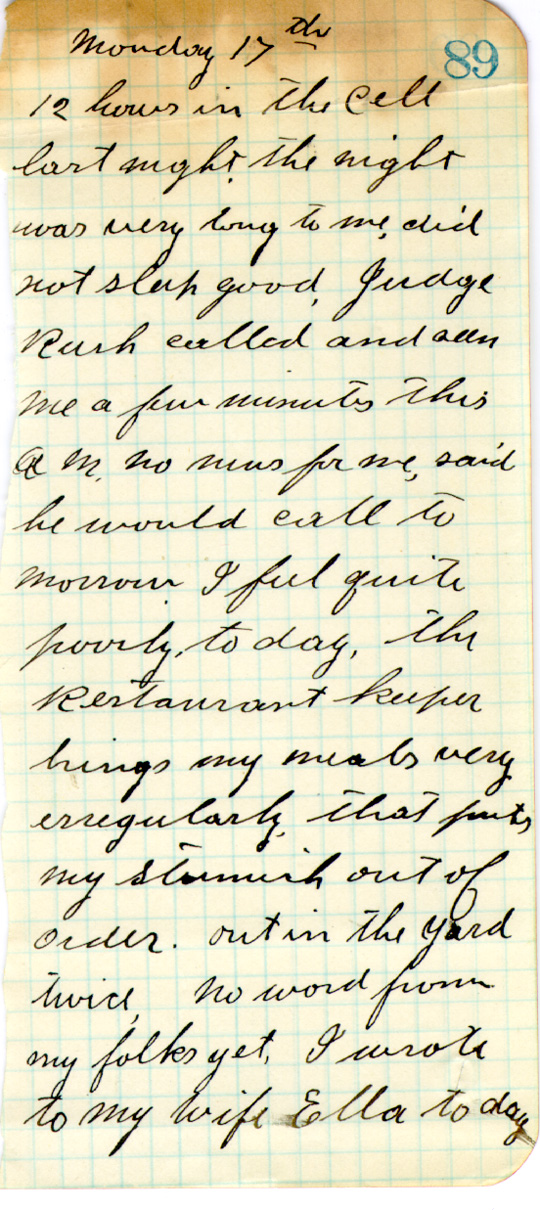 Monday 17th
89
12 hours in the Cell
last night, the night
was very long to me, did
not sleep good, Judge
Rush called and seen
me a few minutes this
A M, no news for me, said
he would call to
morrow I feel quite
poorly, to day, the
Restaurant keeper
brings my meals very
erregularly, that puts
my stumich out of
order. out in the yard
twice, No word from
my folks yet, I wrote
to my wife Ella to day